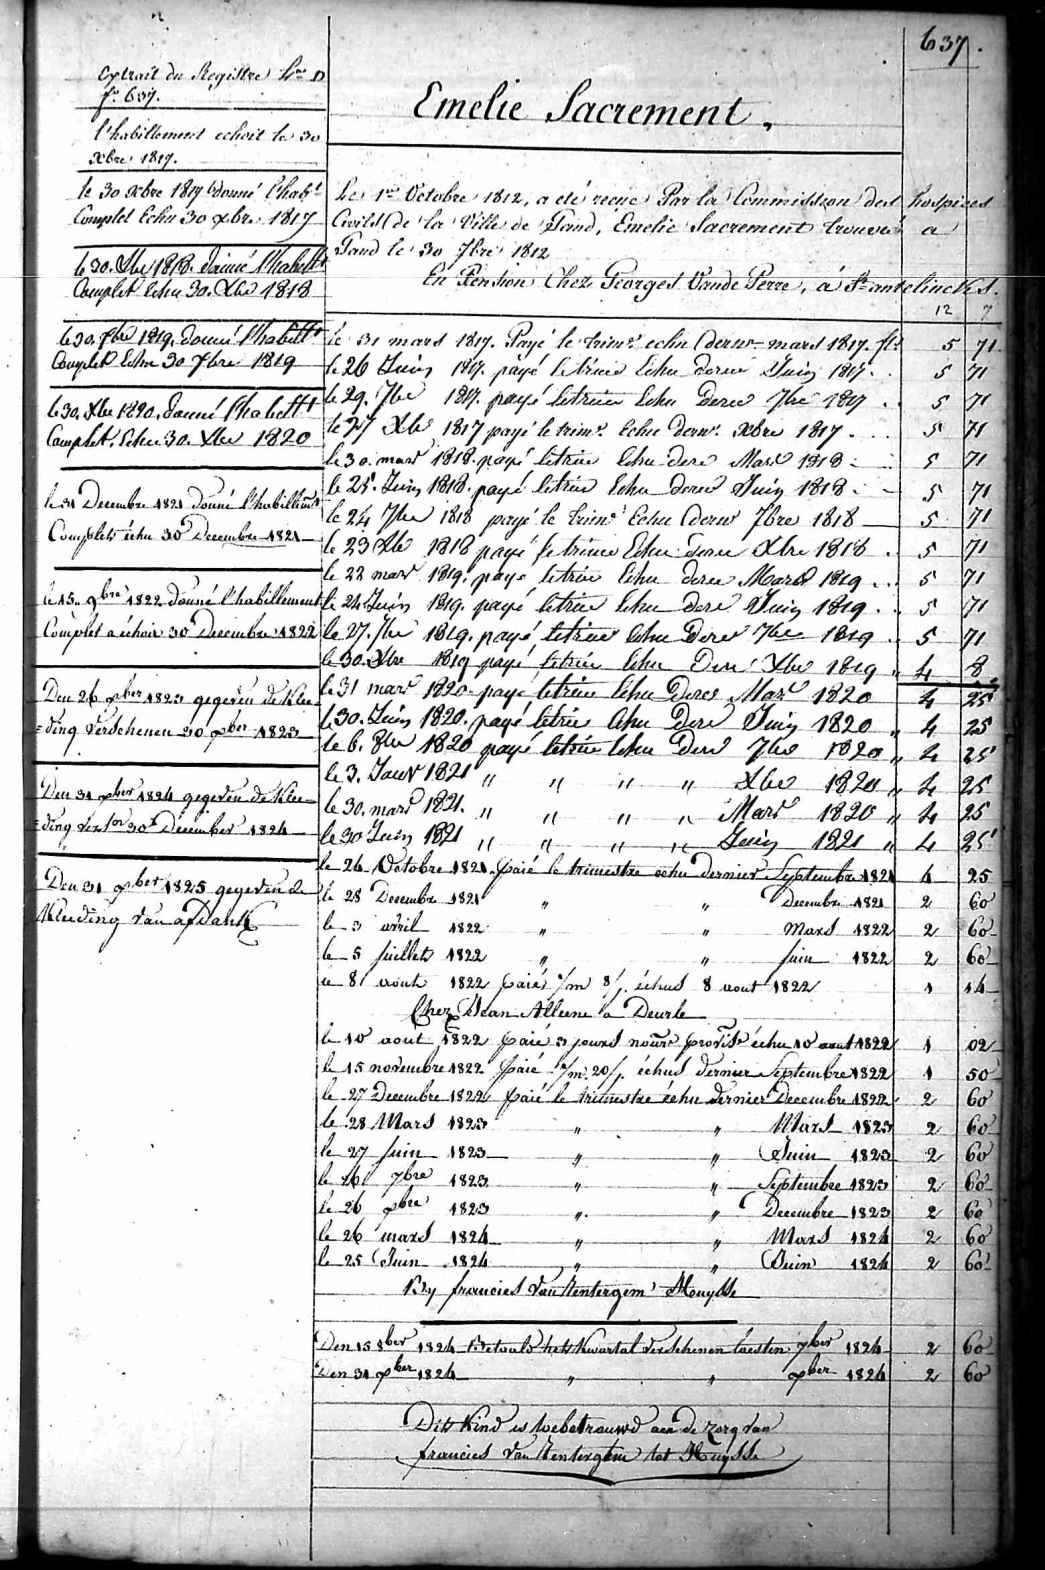 637.
Extrait du Registre Lra D
fo 637.
l'habillement echoit le 30
Xbre 1817.
le 30 Xbre 1817 donné l'habt
Complet Echu 30 Xbre 1817
le 30. Xbre 1818. donné l'habillt
Complet Echu 30. Xbre 1818
le 30. 7bre 1819. donné l'habillt
Complet Echu 30 7bre 1819
le 30. Xbre 1820. donné l'habillt
Complet. Echu 30. Xbre 1820
le 31 Decembre 1821 donné l'habillemt
Complets échu 30 Decembre 1821
le 15. 9bre 1822 donné l'habillement
Complet a échoir 30 Decembre 1822
Den 26 Xber 1823 gegeven de Klee-
=ding verschenen 30 Xber 1823
Den 31 Xber 1824 gegeven de Klee-
=ding 30 December 1824
Den 31 Xber 1825 gegeven de
Kleeding van afdank
Emelie Sacrement.
Le 1er Octobre 1812, a eté recue Par la Commission des hospices
Civils de la Ville de Gand, Emelie Sacrement trouvée a
Gand le 30 7bre 1812
En Pension Chez Georges Vande Perre, á St antelinckx.
12 7
le 31 mars 1817. Payé le trimre echu dernr mars 1817. fls 5 71
le 26 Juin 1817. payé letrim Echu dernr Juin 1817. 5 71
le 29. 7bre 1817. payé letrim Echu dernr 7bre 1817 5 71
le 27 Xbre 1817 payé le trimr. Echu dernr. Xbre 1817. 5 71
le 30. mars 1818. payé letrim Echu dernr Mars 1818 5 71
le 25. Juin 1818. payé letrim Echu dernr Juin 1818. 5 71
le 24 7bre 1818 payé le trimre Echu dernr 7bre 1818 5 71
le 23 Xbre 1818 payé letrim Echu dernr Xbre 1818. 5 71
le 22 mars 1819. payé letrim Echu dernr Mars 1819 5 71
le 24 Juin 1819. payé letrim Echu dernr Juin 1819. 5 71
le 27. 7bre 1819. payé letrim Echu dernr 7bre 1819 5 71
le 30. Xbre 1819 payé letrim Echu dernr Xbre 1819 " 4 8
le 31 mars 1820. payé letrim Echu dernr Mars 1820 4 25
le 30. Juin 1820. payé letrim Echu dernr Juin 1820 " 4 25
le 6. 8bre 1820 payé letrim Echu dernr 7bre 1820 " 4 25
le 3. Janvr 1821 " " " " Xbre 1820 " 4 25
le 30. mars 1821. " " " " Mars 1820 " 4 25
le 30 Juin 1821 " " " " Juin 1821 " 4 25
le 26. Octobre 1821. paié le trimestre echu dernier Septembre 1821 4 25
le 28 Decembre 1821 " " Decembre 1821 2 60
le 3 avril 1822 " " Mars 1822 2 60
le 5 Juillet 1822 " " Juin 1822 2 60
le 8 aout 1822 paié p/m 8/j. échus 8 aout 1822 1 14
Chez Jean Alleene a Deurle
le 10 aout 1822 paié 3 jours nourre provisre échu 10 aout 1822 1 02
le 15 novembre 1822 paié 1/m. 20/j. échus dernier Septembre 1822 1 50
le 27 Decembre 1822 paié le trimestre échu dernier Decembre 1822 2 60
le 28 Mars 1823 " " Mars 1823 2 60
le 27 Juin 1823 " " Juin 1823 2 60
le 26 7bre 1823 " " Septembre 1823 2 60
le 26 Xbre 1823 " " Decembre 1823 2 60
le 26 mars 1824 " " Mars 1824 2 60
le 25 Juin 1824 " " Juin 1824 2 60
By francies Van Kentergem Huysse
Den 15 8ber 1824 Betaald het kwartal verschenen laesten 7ber 1824 2 60
Den 31 Xber 1824 " " Xber 1824 2 60
Dits kind is toebetrouwd aen de zorg van
francies Van Kentergem tot Huysse